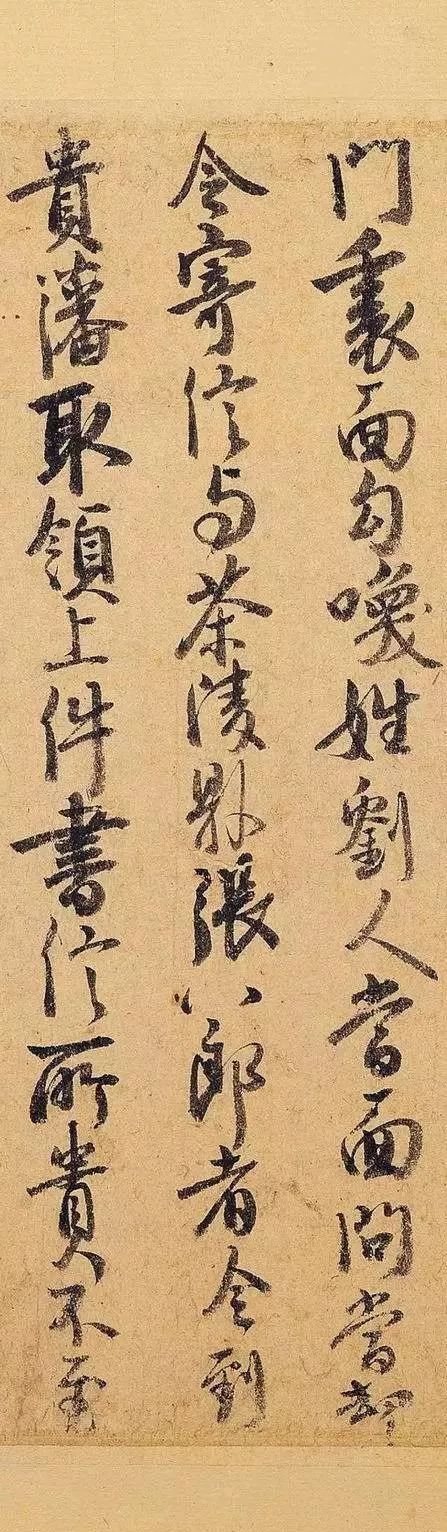 門裏面勾喚姓劉人當面問當却
令寄信与茶陵縣張八郎者令到
貴藩取領上件書信所貴不